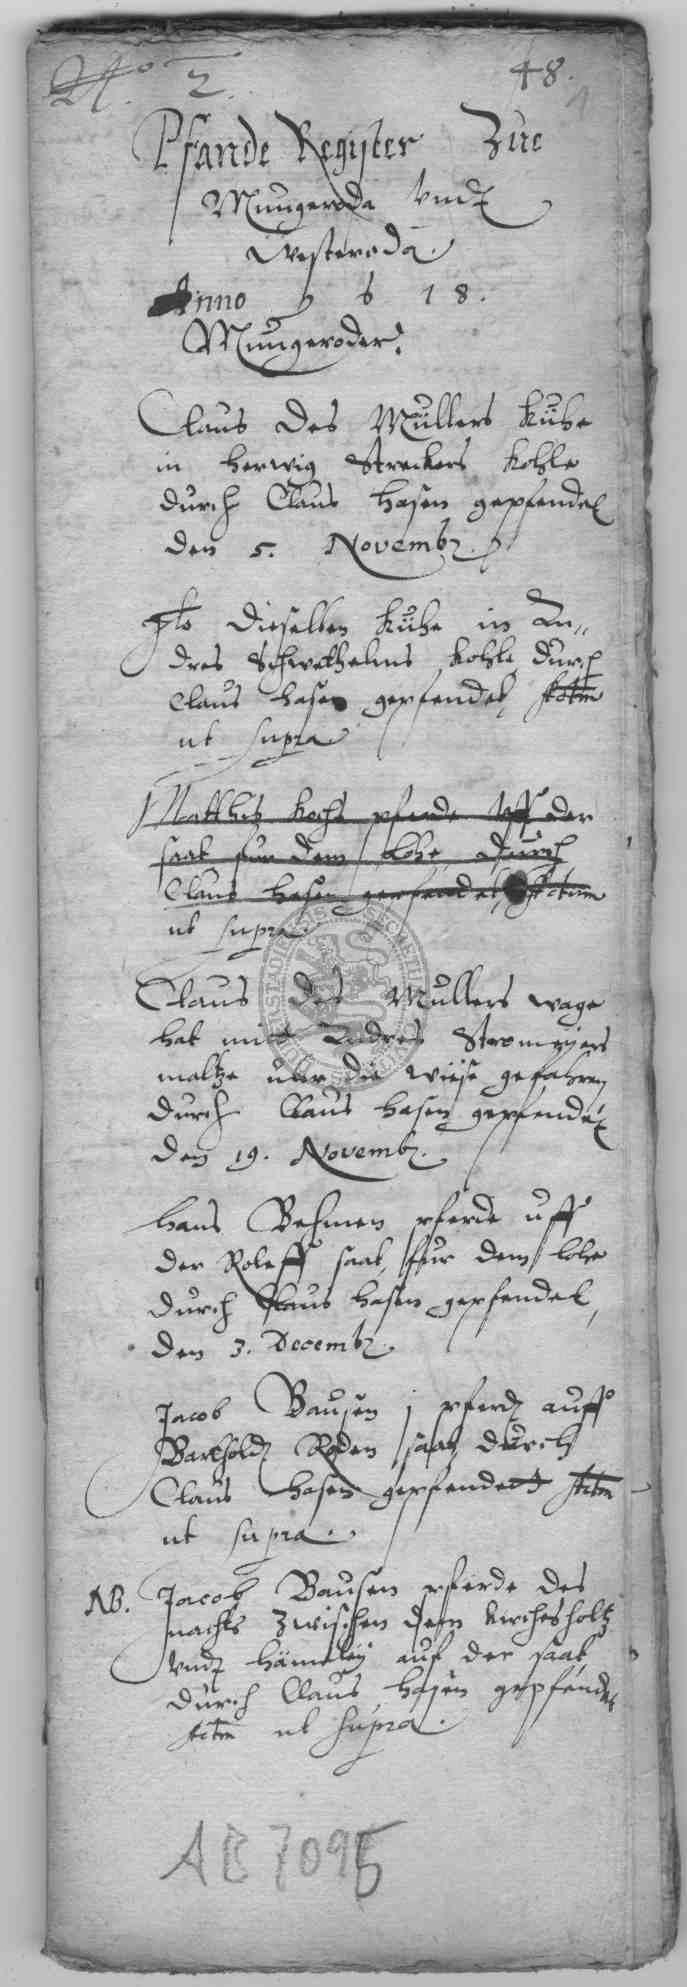 No 2. 48.
1
Pfande Register Zue
Mungeroda Vndt
Westeroda.
Anno 1 6 1 8.
Mungeroder.
Claus des Müllers Kühe
in herwig Streckers Kohle
durch Claus hasen gepfendet
den 5. Novembr.
Ito dieselben Kühe in An,,
dres Schwethelms Kohle durch
Claus hasen gepfendet, Actm
ut supra
Matthes Kochs pferde vff der
saat fur dem lohe durch
Claus hasen gepfendet, Actum
ut supra.
Claus des Mullers wage
hat mitt Andres Stromeyers
maltze uber die wiese gefahren
durch Claus hasen gepfendet
den 19. Novembr.
hans Behmen pferde uff
der Roleff saat, fur dem lohe
durch Claus hasen gepfendet,
den 3. Decembr.
Jacob Bausen j pferdt auff
Bartholdt Roden saat durch
Claus hasen gepfendett Actm
ut supra.
NB. Jacob Bausen pferde des
nachts zwischen dem Kirchesholtz
Vndt auf der saat
durch Claus hasen gepfendet
Actm ut supra.
AB 7095